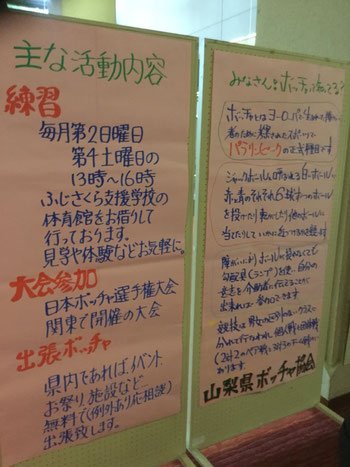 主な活動内容
練習
毎月第2日曜日
第4土曜日の
13時～16時
ふじざくら支援学校の
体育館をお借りして
行っております。
見学や体験などお気軽に。
大会参加
日本ボッチャ選手権大会
関東で開催の大会
出張ボッチャ
県内であれば、イベント、
お祭り、施設など
無料で(例外あり応相談)
出張致します。
みなさん!ボッチャ知ってる?
ボッチャとはヨーロッパで生まれた
パラリンピックの正式種目です
ジャックボールと呼ばれる白いボールに
赤・青のそれぞれ6球ずつのボールを
投げたり転がしたり他のボールに
当てたりしていかに近づけるかを競います
障がいによりボールを投げることができなくても
勾配具(ランプ)を使い、自分の
意志を介助者に伝えることが
出来れば参加できます
競技は男女の区別なくクラスに
分かれて行なわれ、個人戦と団体戦
(2対2のペア戦と3対3のチーム戦)が
あります
山梨県ボッチャ協会